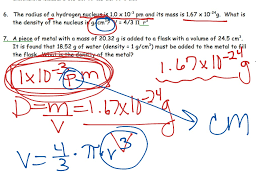 6. The radius of a hydrogen nucleus is 1.0 x 10⁻³ pm and its mass is 1.67 x 10⁻²⁴g. What is
the density of the nucleus is g/cm³? V = 4/3 π r³
7. A piece of metal with a mass of 20.32 g is added to a flask with a volume of 24.5 cm³.
It is found that 18.52 g of water (density = 1 g/cm³) must be added to the metal to fill
the flask. What is the density of the metal?
1x10⁻³ pm
1.67x10⁻²⁴g
D = m/V = 1.67x10⁻²⁴g
cm
V = 4/3 · π · r³